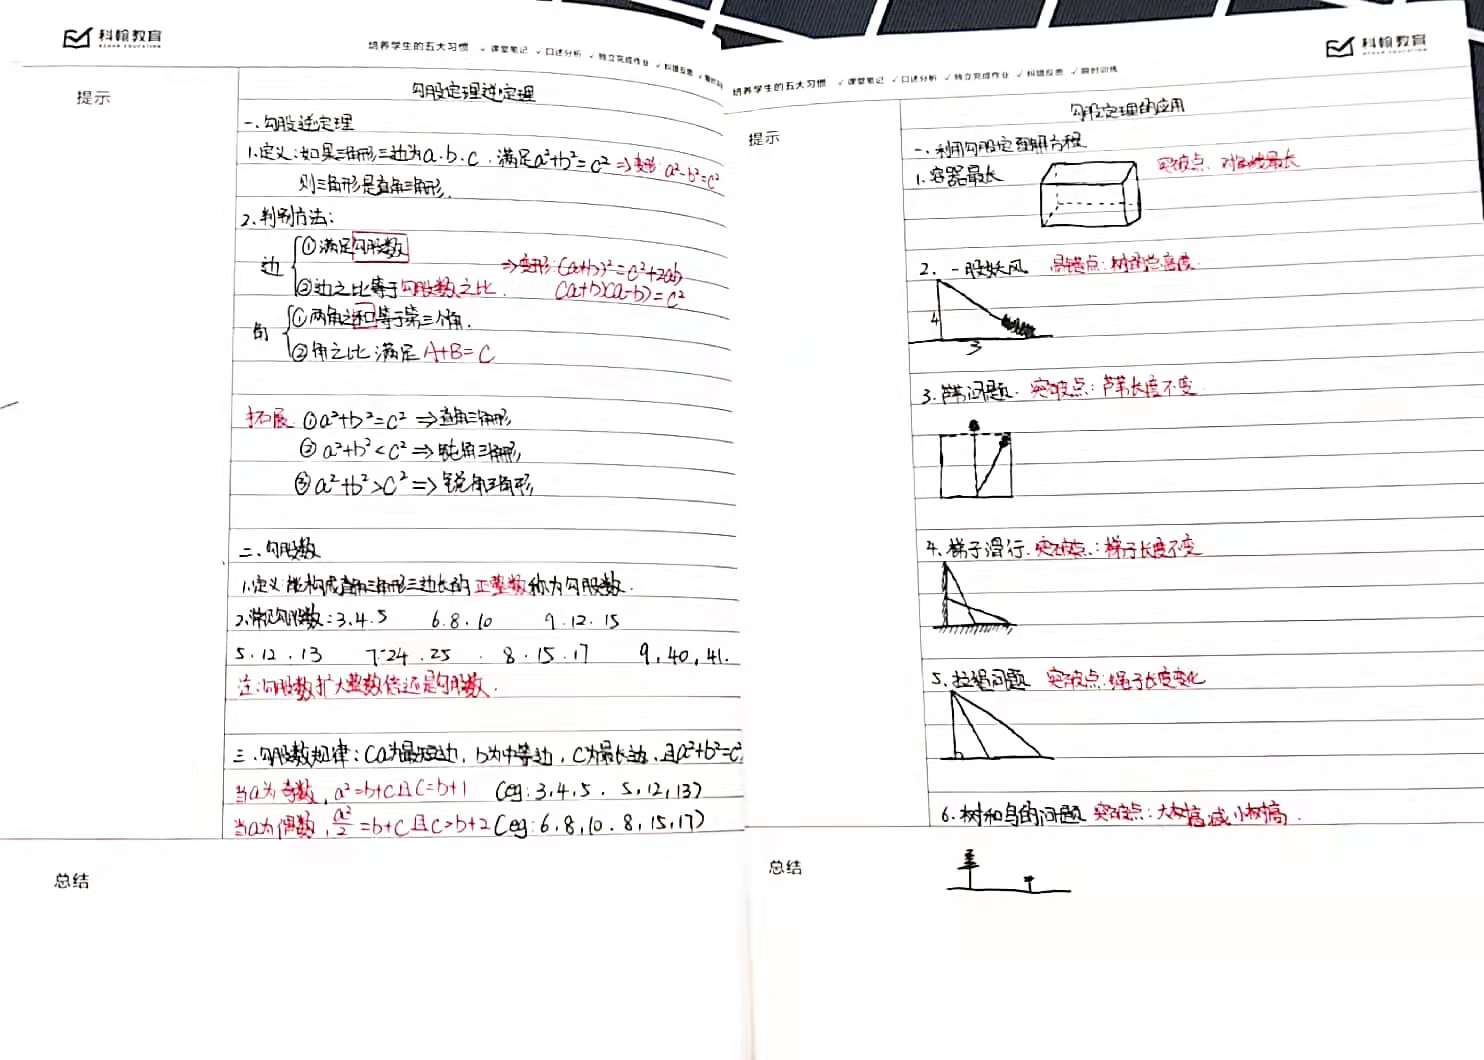 科翰教育
KEHAN EDUCATION
培养学生的五大习惯 ✓课堂笔记 ✓口述分析 ✓独立完成作业 ✓纠错反思 ✓限时训练
提示
勾股定理逆定理
一.勾股逆定理
1.定义:如果三角形三边为a.b.c.满足a²+b²=c² ⇒变形 a²-b²=c²
则三角形是直角三角形.
2.判别方法:
边 ①满足勾股数
⇒变形:(a+b)²=c²+2ab
②边之比等于勾股数之比.
(a+b)(a-b)=c²
角 ①两角之和等于第三个角.
②角之比满足A+B=C
拓展 ①a²+b²=c² ⇒直角三角形
②a²+b²<c² ⇒钝角三角形
③a²+b²>c² ⇒锐角三角形
二.勾股数
1.定义:能构成直角三角形三边长的正整数称为勾股数.
2.常见勾股数:3.4.5 6.8.10 9.12.15
5.12.13 7.24.25 8.15.17 9,40,41.
注:勾股数扩大整数倍还是勾股数.
三.勾股数规律:(a为最短边,b为中等边,c为最长边,且a²+b²=c²
当a为奇数,a²=b+c且c=b+1 (eg:3,4,5. 5,12,13)
当a为偶数,a²/2=b+c且c=b+2(eg:6,8,10.8,15,17)
总结
科翰教育
KEHAN EDUCATION
培养学生的五大习惯 ✓课堂笔记 ✓口述分析 ✓独立完成作业 ✓纠错反思 ✓限时训练
提示
勾股定理的应用
一.利用勾股定理解方程
1.容器最长 突破点:对角线最长
2.一股妖风 易错点:树的总高度
4
3
3.芦苇问题. 突破点:芦苇长度不变
4.梯子滑行.突破点:梯子长度不变
5.拉绳问题 突破点:绳子长度变化
6.树和鸟的问题 突破点:大树高减小树高.
总结